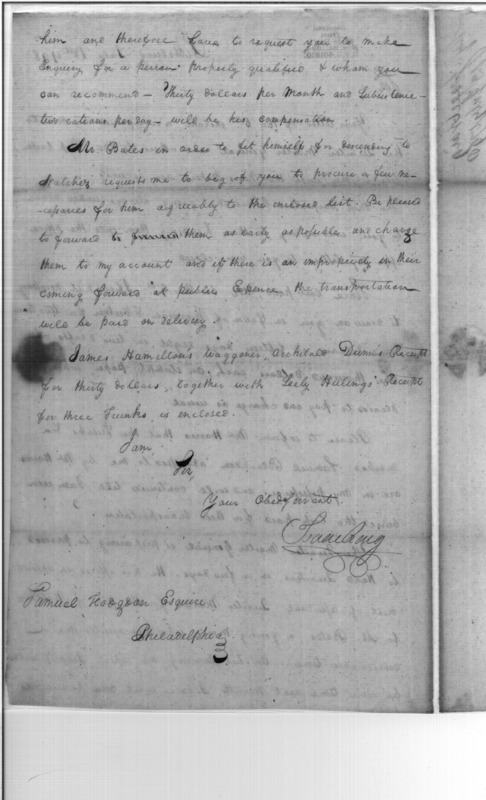 him and therefore have to request you to make
Enquiry for a person properly qualified & whom you
can recommend – Thirty dollars per Month and Subsistence –
two rations per day – will be his compensation.
Mr. Bates in order to fit himself for descending to
Natchez requests me to beg of you to procure a few ne-
-cessaries for him agreeably to the enclosed list. Be pleased
to forward them as early as possible and charge
them to my account and if there is an impropriety in their
coming forward at public Expence the transportation
will be paid on delivery.
James Hamiltons Waggoner, Archibald Receipt
for thirty dollars, together with Receipt
for three Trunks is enclosed.
I am
Sir,
Your Obed. servant
Isaac Craig
Samuel Hodgdon Esquire
Philadelphia